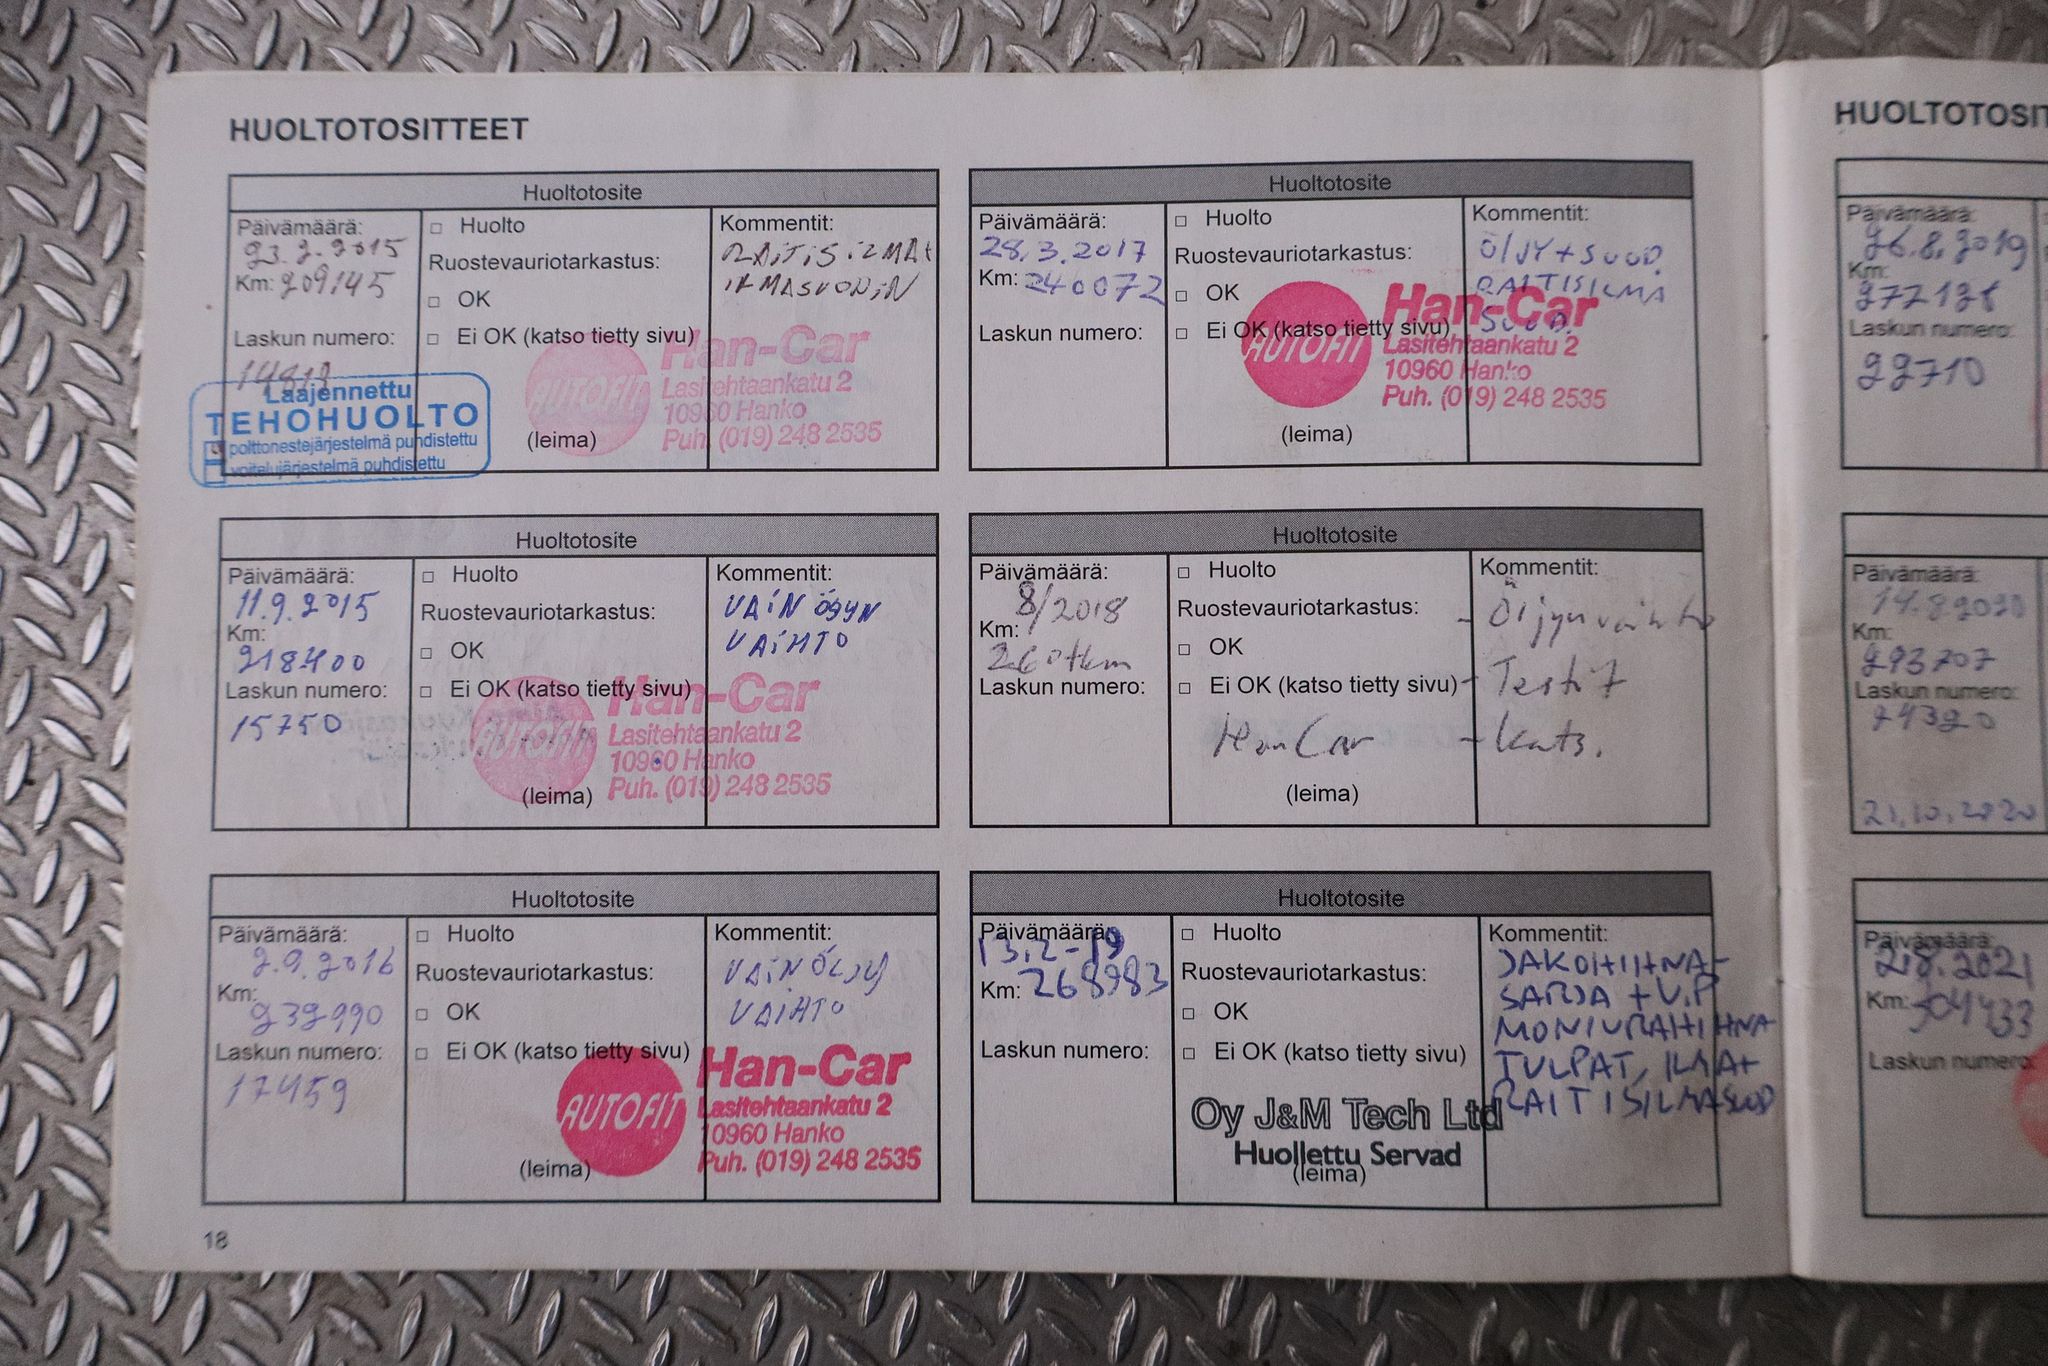 HUOLTOTOSITTEET
Huoltotosite
Päivämäärä:
23.2.2015
Km: 209145
Laskun numero:
□ Huolto
Ruostevauriotarkastus:
□ OK
□ Ei OK (katso tietty sivu)
(leima)
Kommentit:
RAITISILMA+
Laajennettu
TEHOHUOLTO
polttonestejärjestelmä puhdistettu
voitelujärjestelmä puhdistettu
AUTOFIT
Han-Car
Lasitehtaankatu 2
10960 Hanko
Puh. (019) 248 2535
Huoltotosite
Päivämäärä:
11.9.2015
Km:
218400
Laskun numero:
15750
□ Huolto
Ruostevauriotarkastus:
□ OK
□ Ei OK (katso tietty sivu)
(leima)
Kommentit:
VAIN
VAIHTO
AUTOFIT
Han-Car
Lasitehtaankatu 2
10960 Hanko
Puh. (019) 248 2535
Huoltotosite
Päivämäärä:
2.9.2016
Km:
232990
Laskun numero:
17459
□ Huolto
Ruostevauriotarkastus:
□ OK
□ Ei OK (katso tietty sivu)
(leima)
Kommentit:
VAIN ÖLJY
VAIHTO
AUTOFIT
Han-Car
Lasitehtaankatu 2
10960 Hanko
Puh. (019) 248 2535
18
Huoltotosite
Päivämäärä:
28.3.2017
Km: 240072
Laskun numero:
□ Huolto
Ruostevauriotarkastus:
□ OK
□ Ei OK (katso tietty sivu)
(leima)
Kommentit:
ÖLJY + SUOD.
RAITISILMA
SUOD.
AUTOFIT
Han-Car
Lasitehtaankatu 2
10960 Hanko
Puh. (019) 248 2535
Huoltotosite
Päivämäärä:
8/2018
Km:
260tkm
Laskun numero:
□ Huolto
Ruostevauriotarkastus:
□ OK
□ Ei OK (katso tietty sivu)
HanCar
(leima)
Kommentit:
- Öljynvaihto
- Testit
- Kats.
Huoltotosite
Päivämäärä:
13.2-19
Km: 268983
Laskun numero:
□ Huolto
Ruostevauriotarkastus:
□ OK
□ Ei OK (katso tietty sivu)
Oy J&M Tech Ltd
Huollettu Servad
(leima)
Kommentit:
JAKOHIHNA-
SARJA + V.P
MONIURAHIHNA
TULPAT, ILMA+
RAITISILMASUOD
HUOLTOTOSIT
Päivämäärä:
26.8.2019
Km:
Laskun numero:
22710
Päivämäärä:
14.8.2020
Km:
293707
Laskun numero:
24320
21.10.2020
Päivämäärä:
2.8.2021
Km: 304433
Laskun numero: